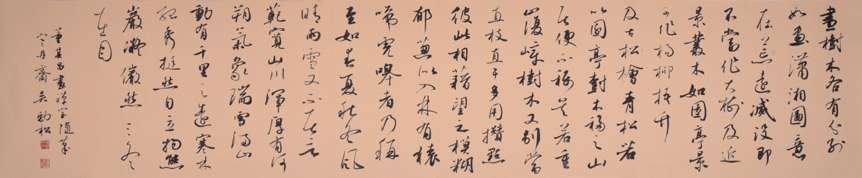 畫樹木各有分别
如画瀟湘圖意
在荒遠滅没即
不當作大樹及近
景叢木如園亭景
可作楊柳梧竹
及古松檜青松若
以園亭樹木移之山
居便不稱矣若重
山復嶂樹木又别當
直枝直干多用攢點
彼此相藉望之模糊
郁葱似入林有猿
啼虎嗥者乃稱
至如春夏秋冬風
晴雨雪又不在言
範寬山川渾厚有河
朔氣象瑞雪滿山
動有千里之遠寒林
孤秀挺然自立物態
嚴凝儼然三冬
在目
董其昌畫禪室隨筆
丹齋吴勁松